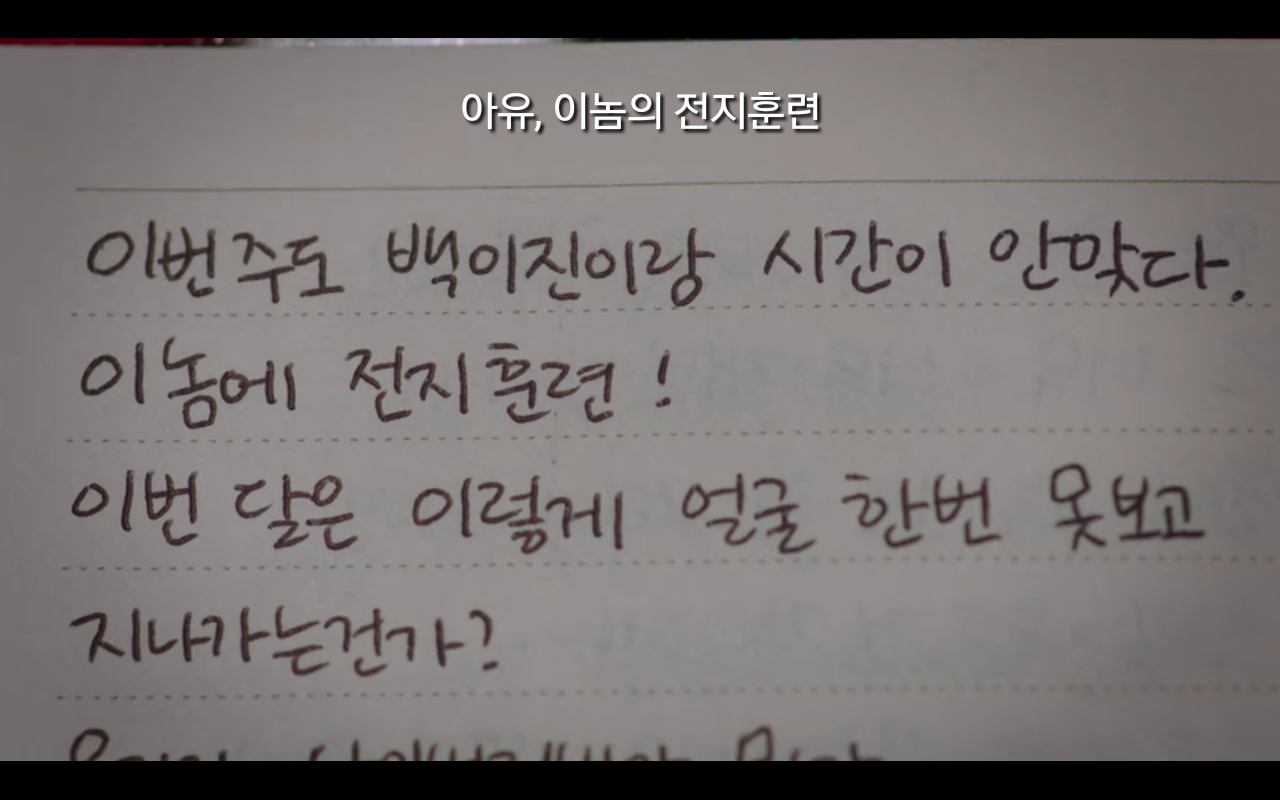 아유, 이놈의 전지훈련
이번주도 백이진이랑 시간이 안맞다.
이놈에 전지훈련!
이번 달은 이렇게 얼굴 한번 못보고
지나가는건가?